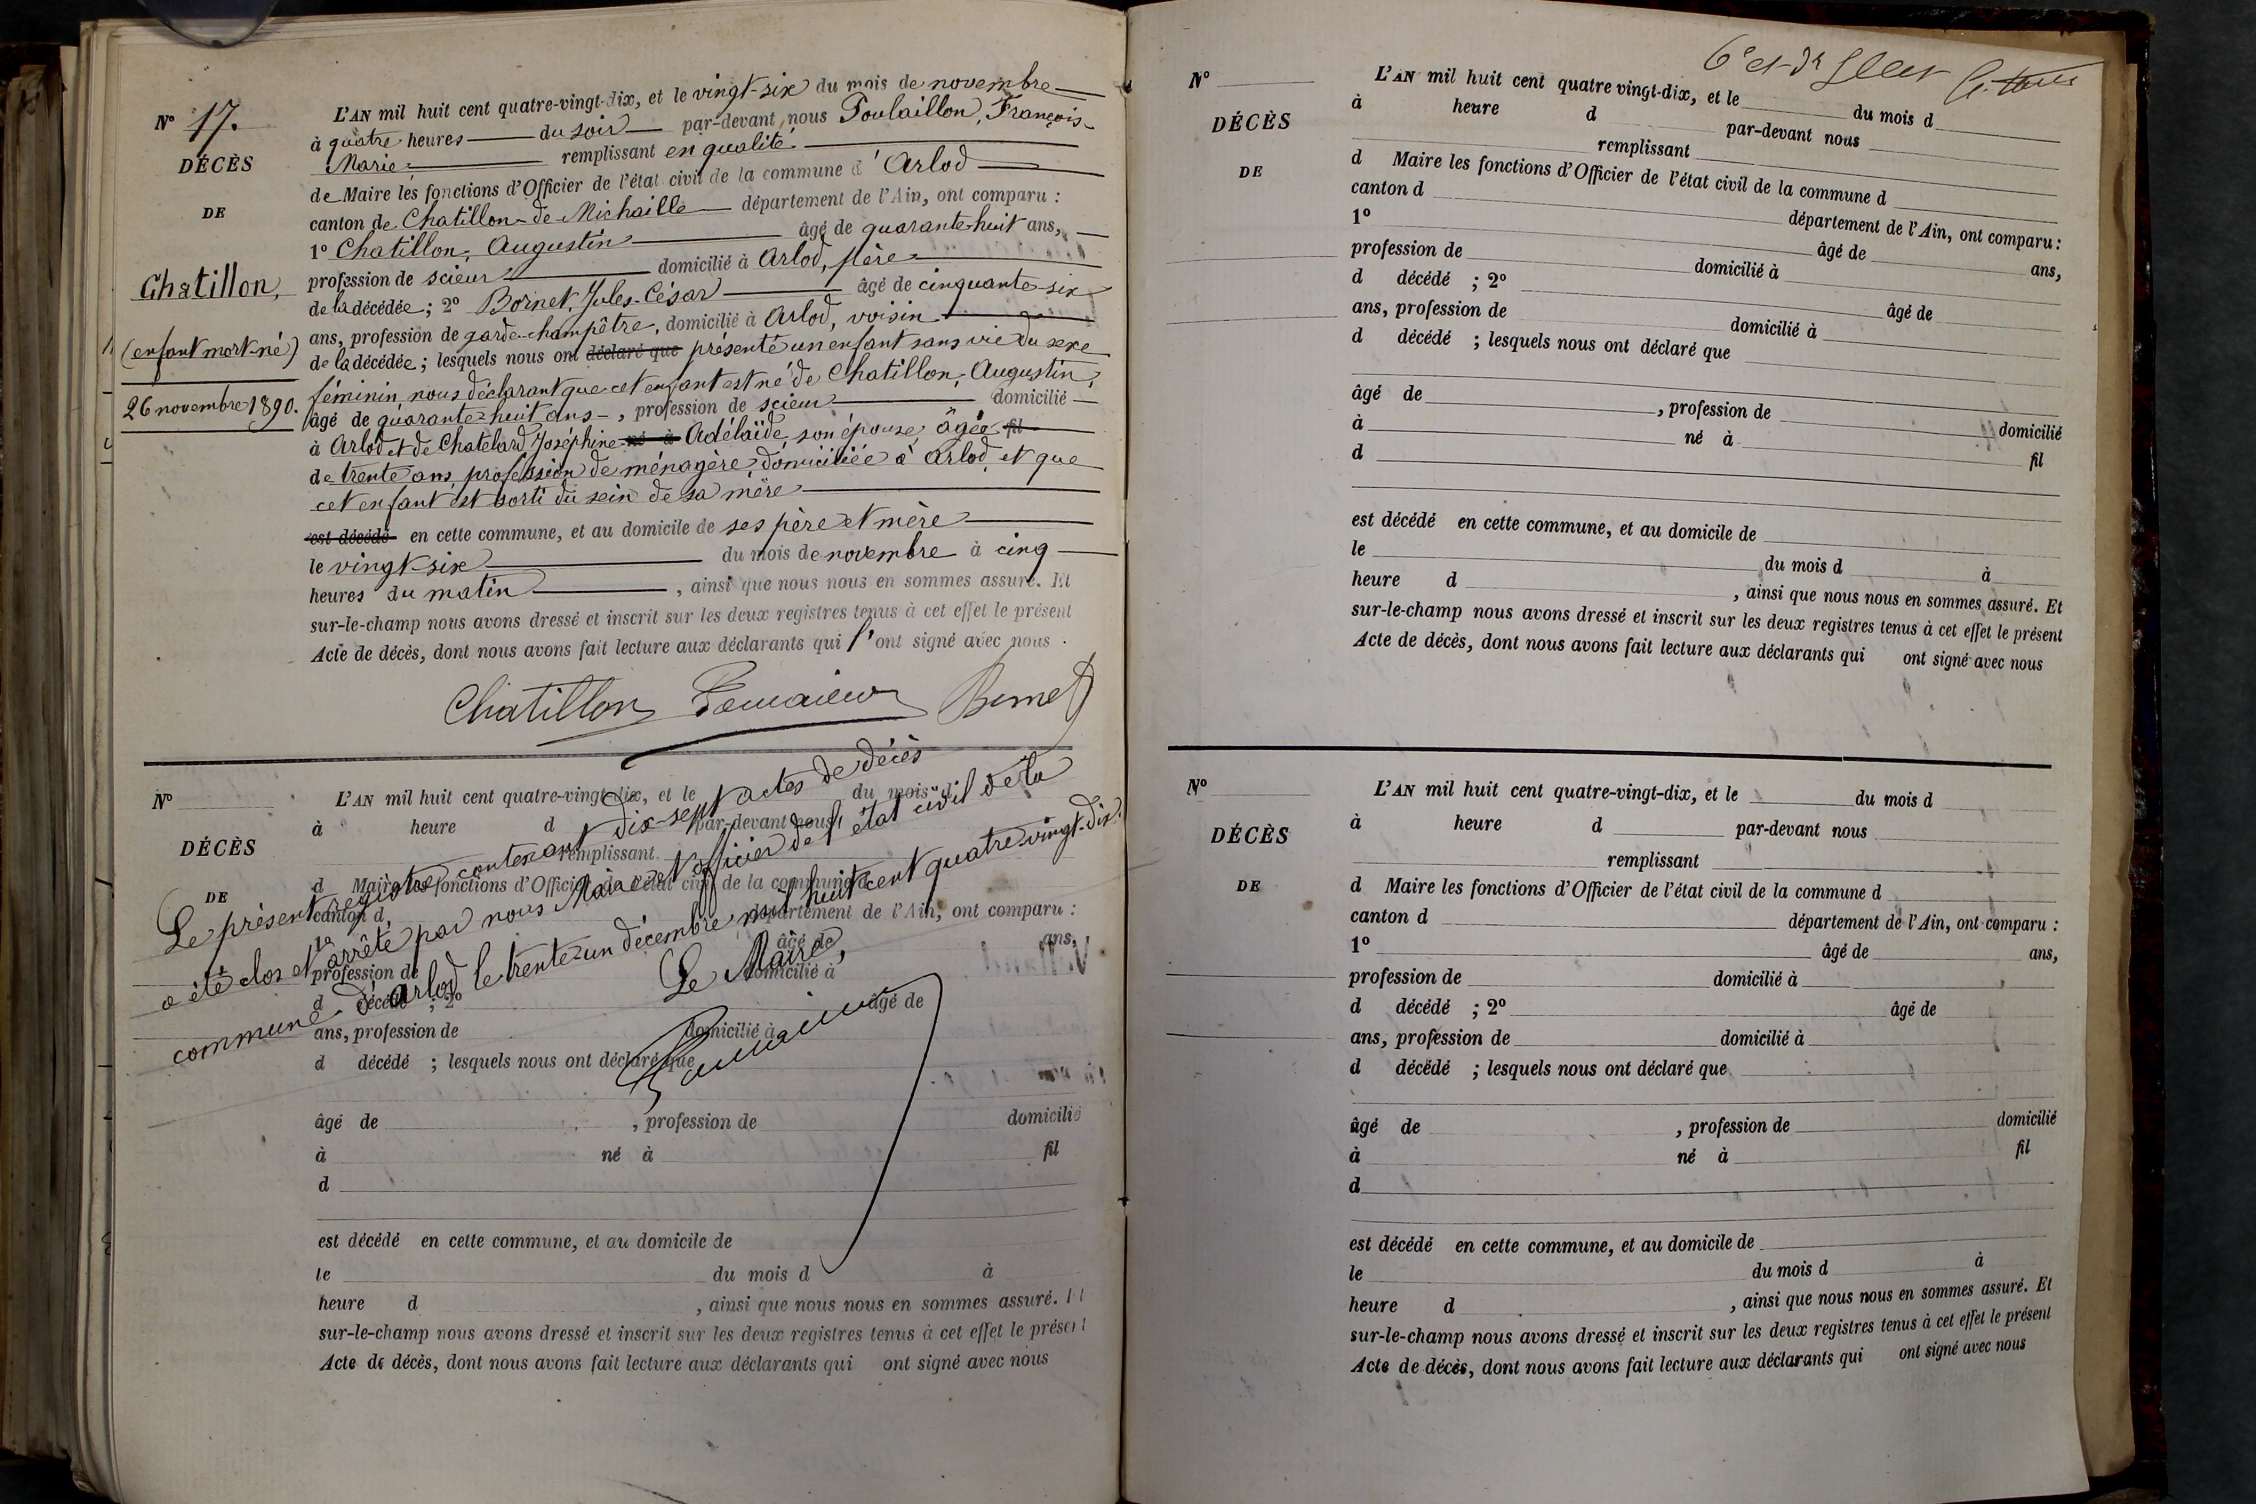 N° 17.
DÉCÈS
DE
Chatillon,
(enfant mort-né)
26 novembre 1890.
L'AN mil huit cent quatre-vingt-dix, et le vingt-six du mois de novembre
à quatre heures du soir par-devant nous Poulaillon, François-
Marie remplissant en qualité
de Maire les fonctions d'Officier de l'état civil de la commune d'Arlod
canton de Chatillon-de-Michaille département de l'Ain, ont comparu :
1° Chatillon, Augustin âgé de quarante-huit ans,
profession de scieur domicilié à Arlod, père
de la décédée ; 2° Bornet, Jules-César âgé de cinquante-six
ans, profession de garde-champêtre, domicilié à Arlod, voisin
de la décédée ; lesquels nous ont déclaré que présenté un enfant sans vie du sexe
féminin nous déclarant que cet enfant est né de Chatillon, Augustin,
âgé de quarante-huit ans, profession de scieur domicilié
à Arlod et de Chatelard Joséphine né à Adélaïde, son épouse, âgée fil
de trente ans, profession de ménagère, domiciliée à Arlod, et que
cet enfant est sorti du sein de sa mère
est décédé en cette commune, et au domicile de ses père et mère
le vingt-six du mois de novembre à cinq
heures du matin, ainsi que nous nous en sommes assuré. Et
sur-le-champ nous avons dressé et inscrit sur les deux registres tenus à cet effet le présent
Acte de décès, dont nous avons fait lecture aux déclarants qui l'ont signé avec nous.
Chatillon Bornet
N°
DÉCÈS
DE
L'AN mil huit cent quatre-vingt-dix, et le du mois d
à heure d par-devant nous
remplissant
d Maire les fonctions d'Officier de l'état civil de la commune d
canton d département de l'Ain, ont comparu :
1° âgé de ans,
profession de domicilié à
d décédé ; 2° âgé de
ans, profession de domicilié à
d décédé ; lesquels nous ont déclaré que
âgé de , profession de domicilié
à né à fil
d
est décédé en cette commune, et au domicile de
le du mois d à
heure d , ainsi que nous nous en sommes assuré. Et
sur-le-champ nous avons dressé et inscrit sur les deux registres tenus à cet effet le présent
Acte de décès, dont nous avons fait lecture aux déclarants qui ont signé avec nous
Le présent registre contenant dix-sept actes de décès
a été clos et arrêté par nous Maire et officier de l'état civil de la
commune d'Arlod le trente-un décembre mil huit cent quatre-vingt-dix.
Le Maire,
N°
DÉCÈS
DE
L'AN mil huit cent quatre vingt-dix, et le du mois d
à heure d par-devant nous
remplissant
d Maire les fonctions d'Officier de l'état civil de la commune d
canton d département de l'Ain, ont comparu :
1° âgé de ans,
profession de domicilié à
d décédé ; 2° âgé de
ans, profession de domicilié à
d décédé ; lesquels nous ont déclaré que
âgé de , profession de domicilié
à né à fil
d
est décédé en cette commune, et au domicile de
le du mois d à
heure d , ainsi que nous nous en sommes assuré. Et
sur-le-champ nous avons dressé et inscrit sur les deux registres tenus à cet effet le présent
Acte de décès, dont nous avons fait lecture aux déclarants qui ont signé avec nous
N°
DÉCÈS
DE
L'AN mil huit cent quatre-vingt-dix, et le du mois d
à heure d par-devant nous
remplissant
d Maire les fonctions d'Officier de l'état civil de la commune d
canton d département de l'Ain, ont comparu :
1° âgé de ans,
profession de domicilié à
d décédé ; 2° âgé de
ans, profession de domicilié à
d décédé ; lesquels nous ont déclaré que
âgé de , profession de domicilié
à né à fil
d
est décédé en cette commune, et au domicile de
le du mois d à
heure d , ainsi que nous nous en sommes assuré. Et
sur-le-champ nous avons dressé et inscrit sur les deux registres tenus à cet effet le présent
Acte de décès, dont nous avons fait lecture aux déclarants qui ont signé avec nous